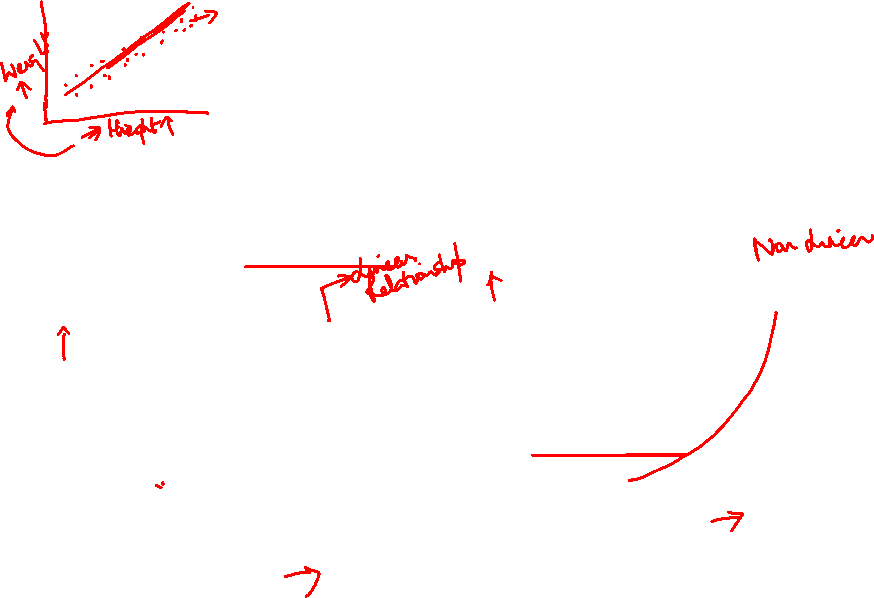 Weight
Height
Linear
Relationship
Non Linear